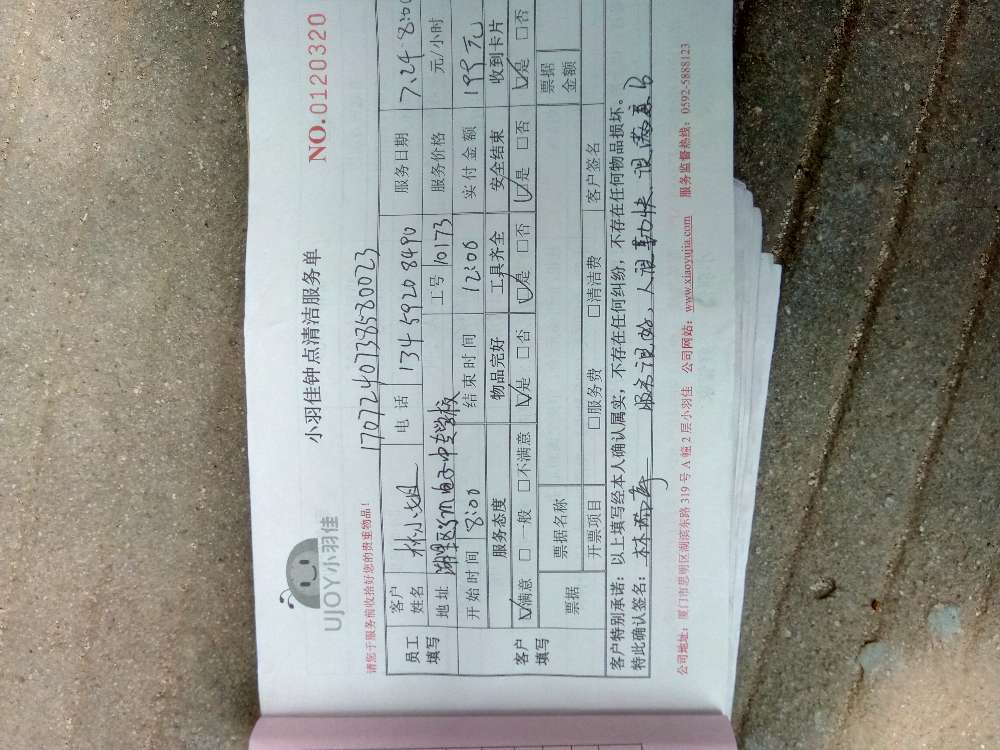 UJOY小羽佳
小羽佳钟点清洁服务单
NO.0120320
请您于服务前收拾好您的贵重物品!
1707240738580023
员工填写 客户姓名 林小姐 电话 13459208490 服务日期 7.24-8:00
地址 湖里区SM电子中专学校 工号 10173 服务价格 元/小时
客户填写 开始时间 8:00 结束时间 12:00 实付金额 199元
服务态度 物品完好 工具齐全 安全结束 收到卡片
☑满意 □一般 □不满意 ☑是 □否 ☑是 □否 ☑是 □否 ☑是 □否
票据 票据名称 票据金额
开票项目 □服务费 □清洁费 客户签名
客户特别承诺:以上填写经本人确认属实,不存在任何纠纷,不存在任何物品损坏。
特此确认签名: 服务很好,人很勤快,很满意
公司地址:厦门市思明区湖滨东路319号A幢2层小羽佳 公司网站:www.xiaoyujia.com 服务监督热线:0592-5888123